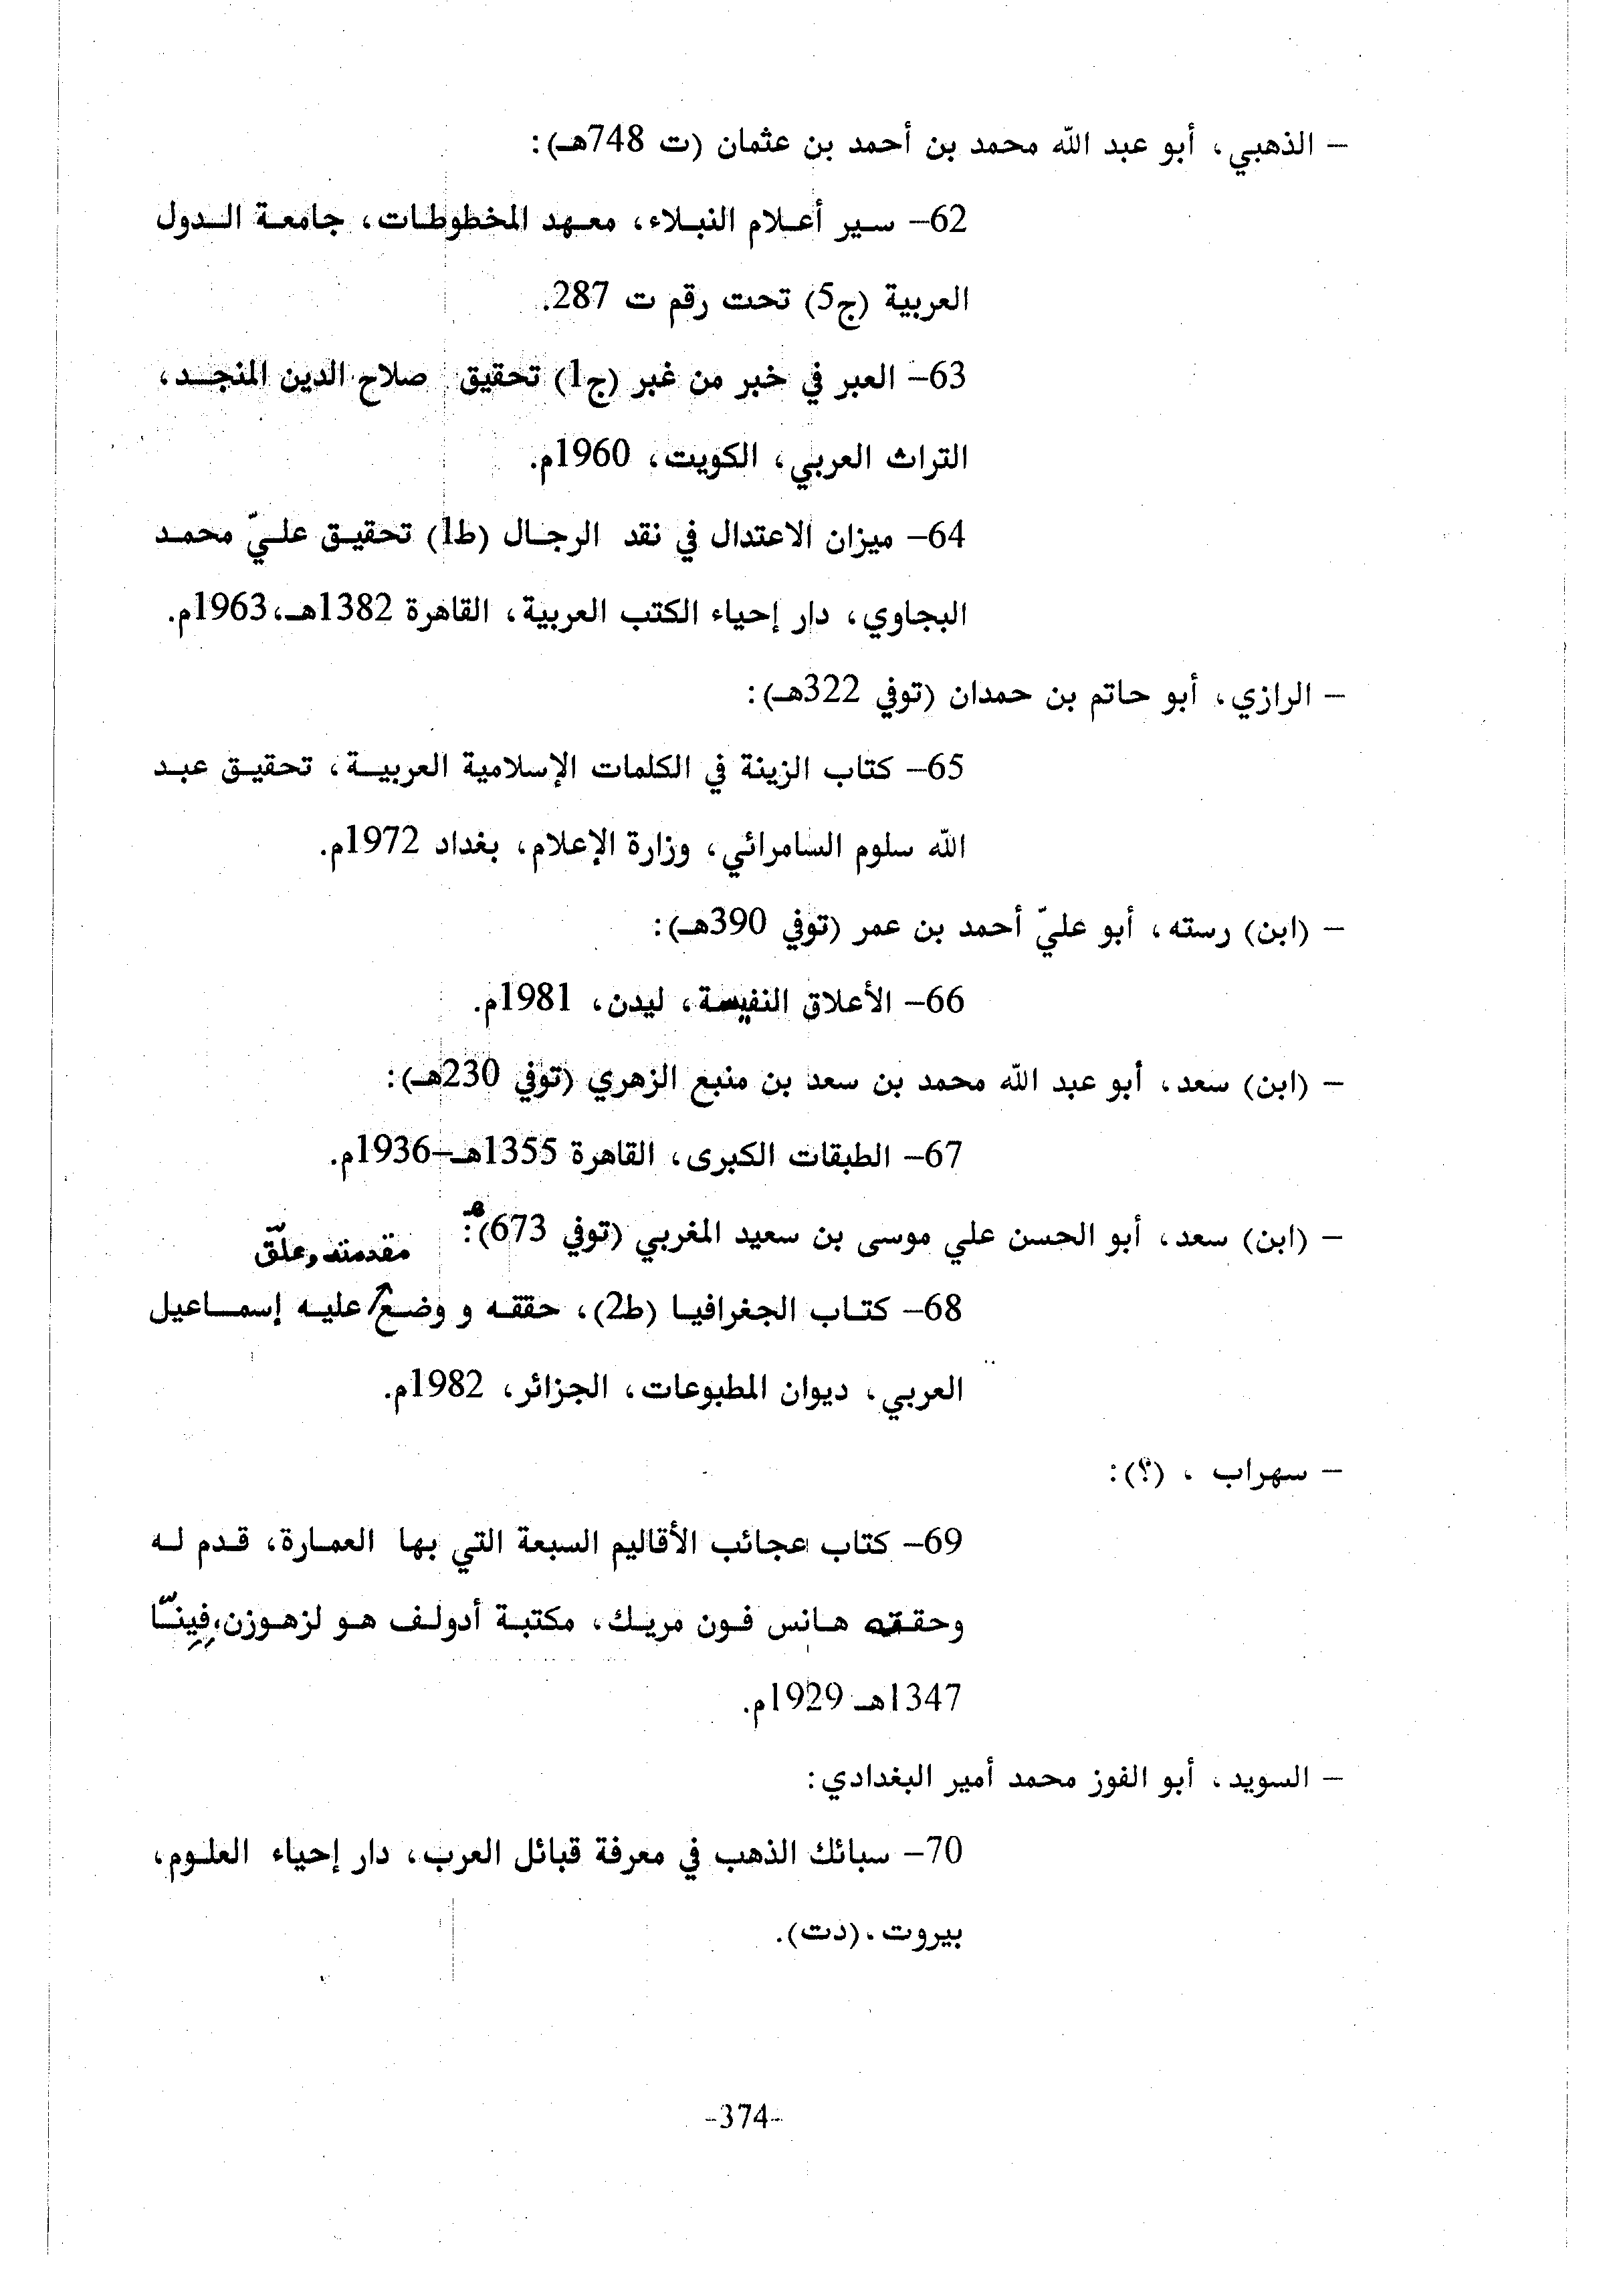 – الذهبي، أبو عبد الله محمد بن أحمد بن عثمان (ت 748هـ):
62– سير أعلام النبلاء، معهد المخطوطات، جامعة الدول
العربية (ج5) تحت رقم ت 287.
63– العبر في خبر من غبر (ج1) تحقيق صلاح الدين المنجد،
التراث العربي، الكويت، 1960م.
64– ميزان الاعتدال في نقد الرجال (ط1) تحقيق عليّ محمد
البجاوي، دار إحياء الكتب العربية، القاهرة 1382هـ،1963م.
– الرازي، أبو حاتم بن حمدان (توفي 322هـ):
65– كتاب الزينة في الكلمات الإسلامية العربية، تحقيق عبد
الله سلوم السامرائي، وزارة الإعلام، بغداد 1972م.
– (ابن) رسته، أبو عليّ أحمد بن عمر (توفي 390هـ):
66– الأعلاق النفيسة، ليدن، 1981م.
– (ابن) سعد، أبو عبد الله محمد بن سعد بن منبع الزهري (توفي 230هـ):
67– الطبقات الكبرى، القاهرة 1355هـ–1936م.
– (ابن) سعد، أبو الحسن علي موسى بن سعيد المغربي (توفي 673هـ):
مقدمته وعلّق
68– كتاب الجغرافيا (ط2)، حققه و وضع/ عليه إسماعيل
العربي، ديوان المطبوعات، الجزائر، 1982م.
– سهراب ، (؟):
69– كتاب عجائب الأقاليم السبعة التي بها العمارة، قدم له
وحققه هانس فون مريك، مكتبة أدولف هو لزهوزن، فيينّا
1347هـ 1929م.
– السويد، أبو الفوز محمد أمير البغدادي:
70– سبائك الذهب في معرفة قبائل العرب، دار إحياء العلوم،
بيروت ،(دت).
-374-